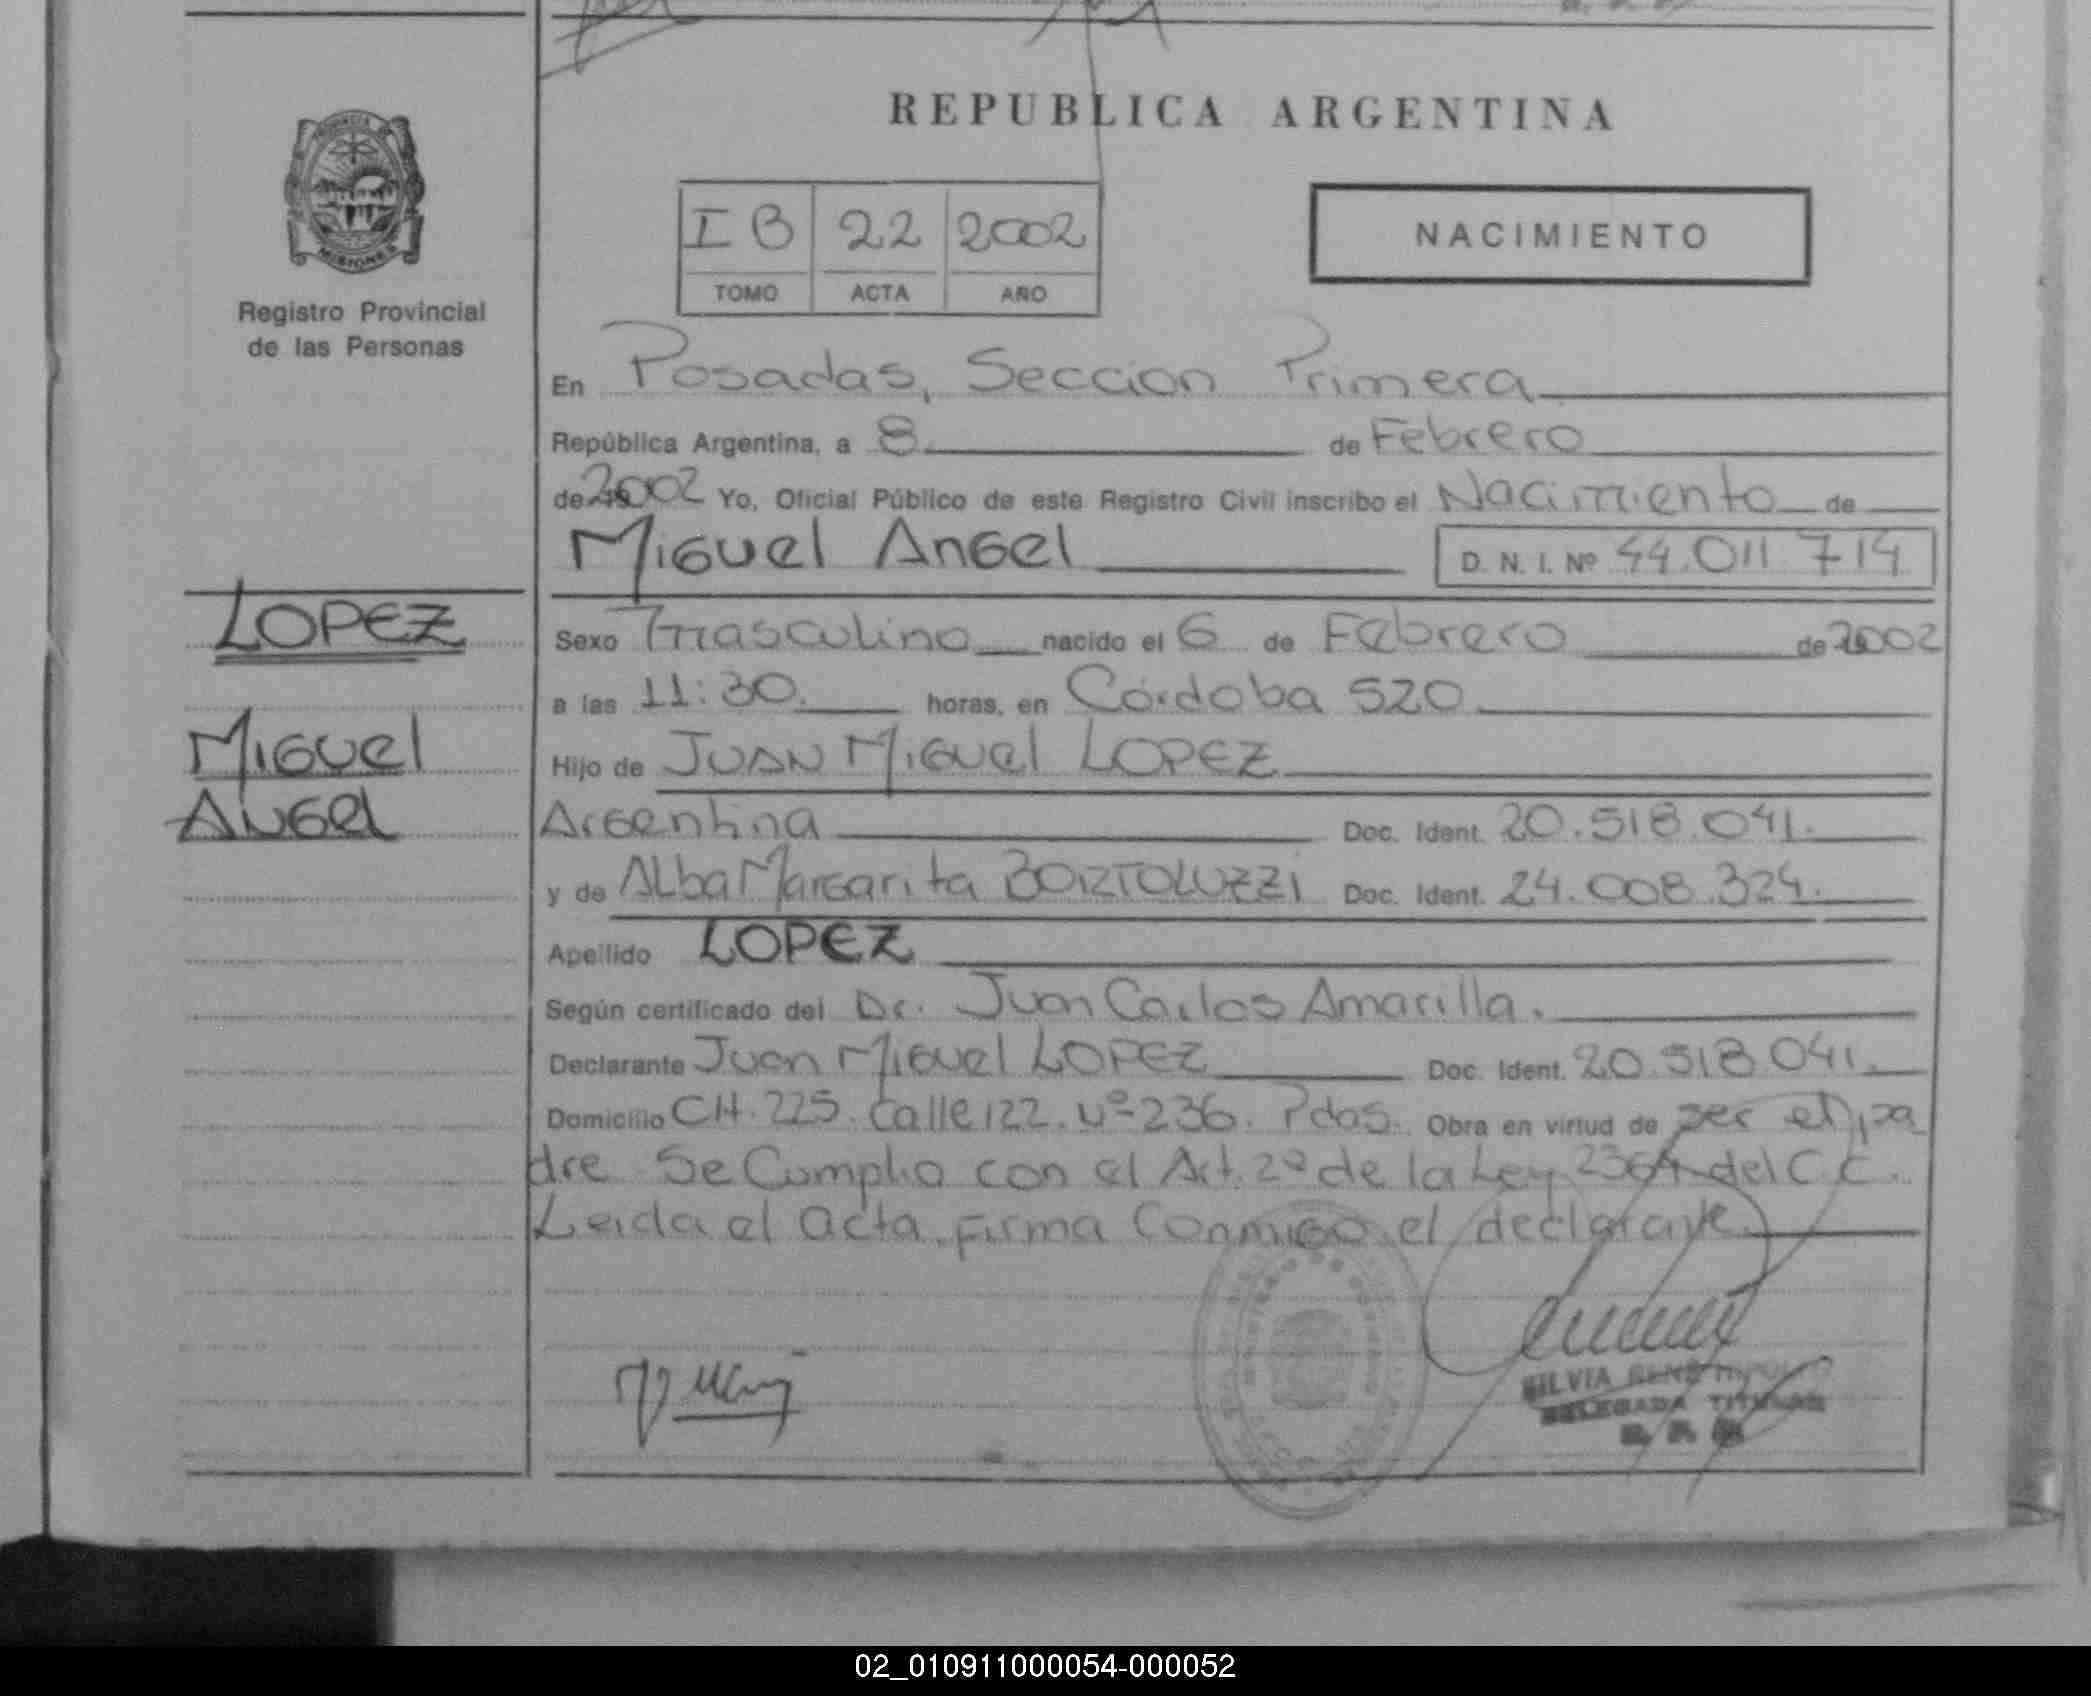 REPUBLICA ARGENTINA
PROVINCIA DE
MISIONES
Registro Provincial
de las Personas
I B 22 2002
TOMO ACTA AÑO
NACIMIENTO
En Posadas, Seccion Primera
República Argentina, a 8 de Febrero
de 2002 Yo, Oficial Público de este Registro Civil inscribo el Nacimiento de
Miguel Angel D. N. I. Nº 44.011.714
LOPEZ
Miguel
Angel
Sexo Masculino nacido el 6 de Febrero de 2002
a las 11:30. horas, en Córdoba 520
Hijo de JUAN Miguel LOPEZ
Argentina Doc. Ident. 20.518.041.
y de Alba Margarita BORTOLUZZI Doc. Ident. 24.008.324.
Apellido LOPEZ
Según certificado del Dr. Juan Carlos Amarilla.
Declarante Juan Miguel LOPEZ Doc. Ident. 20.518.041.
Domicilio CH.225. Calle 122. Nº 236. Pdas. Obra en virtud de ser el pa
dre Se Cumplio con el Art. 2º de la Ley 2364 del C.C.
Leida el acta, firma Conmigo el declarante.
SILVIA
DELEGADA TITULAR
02_010911000054-000052